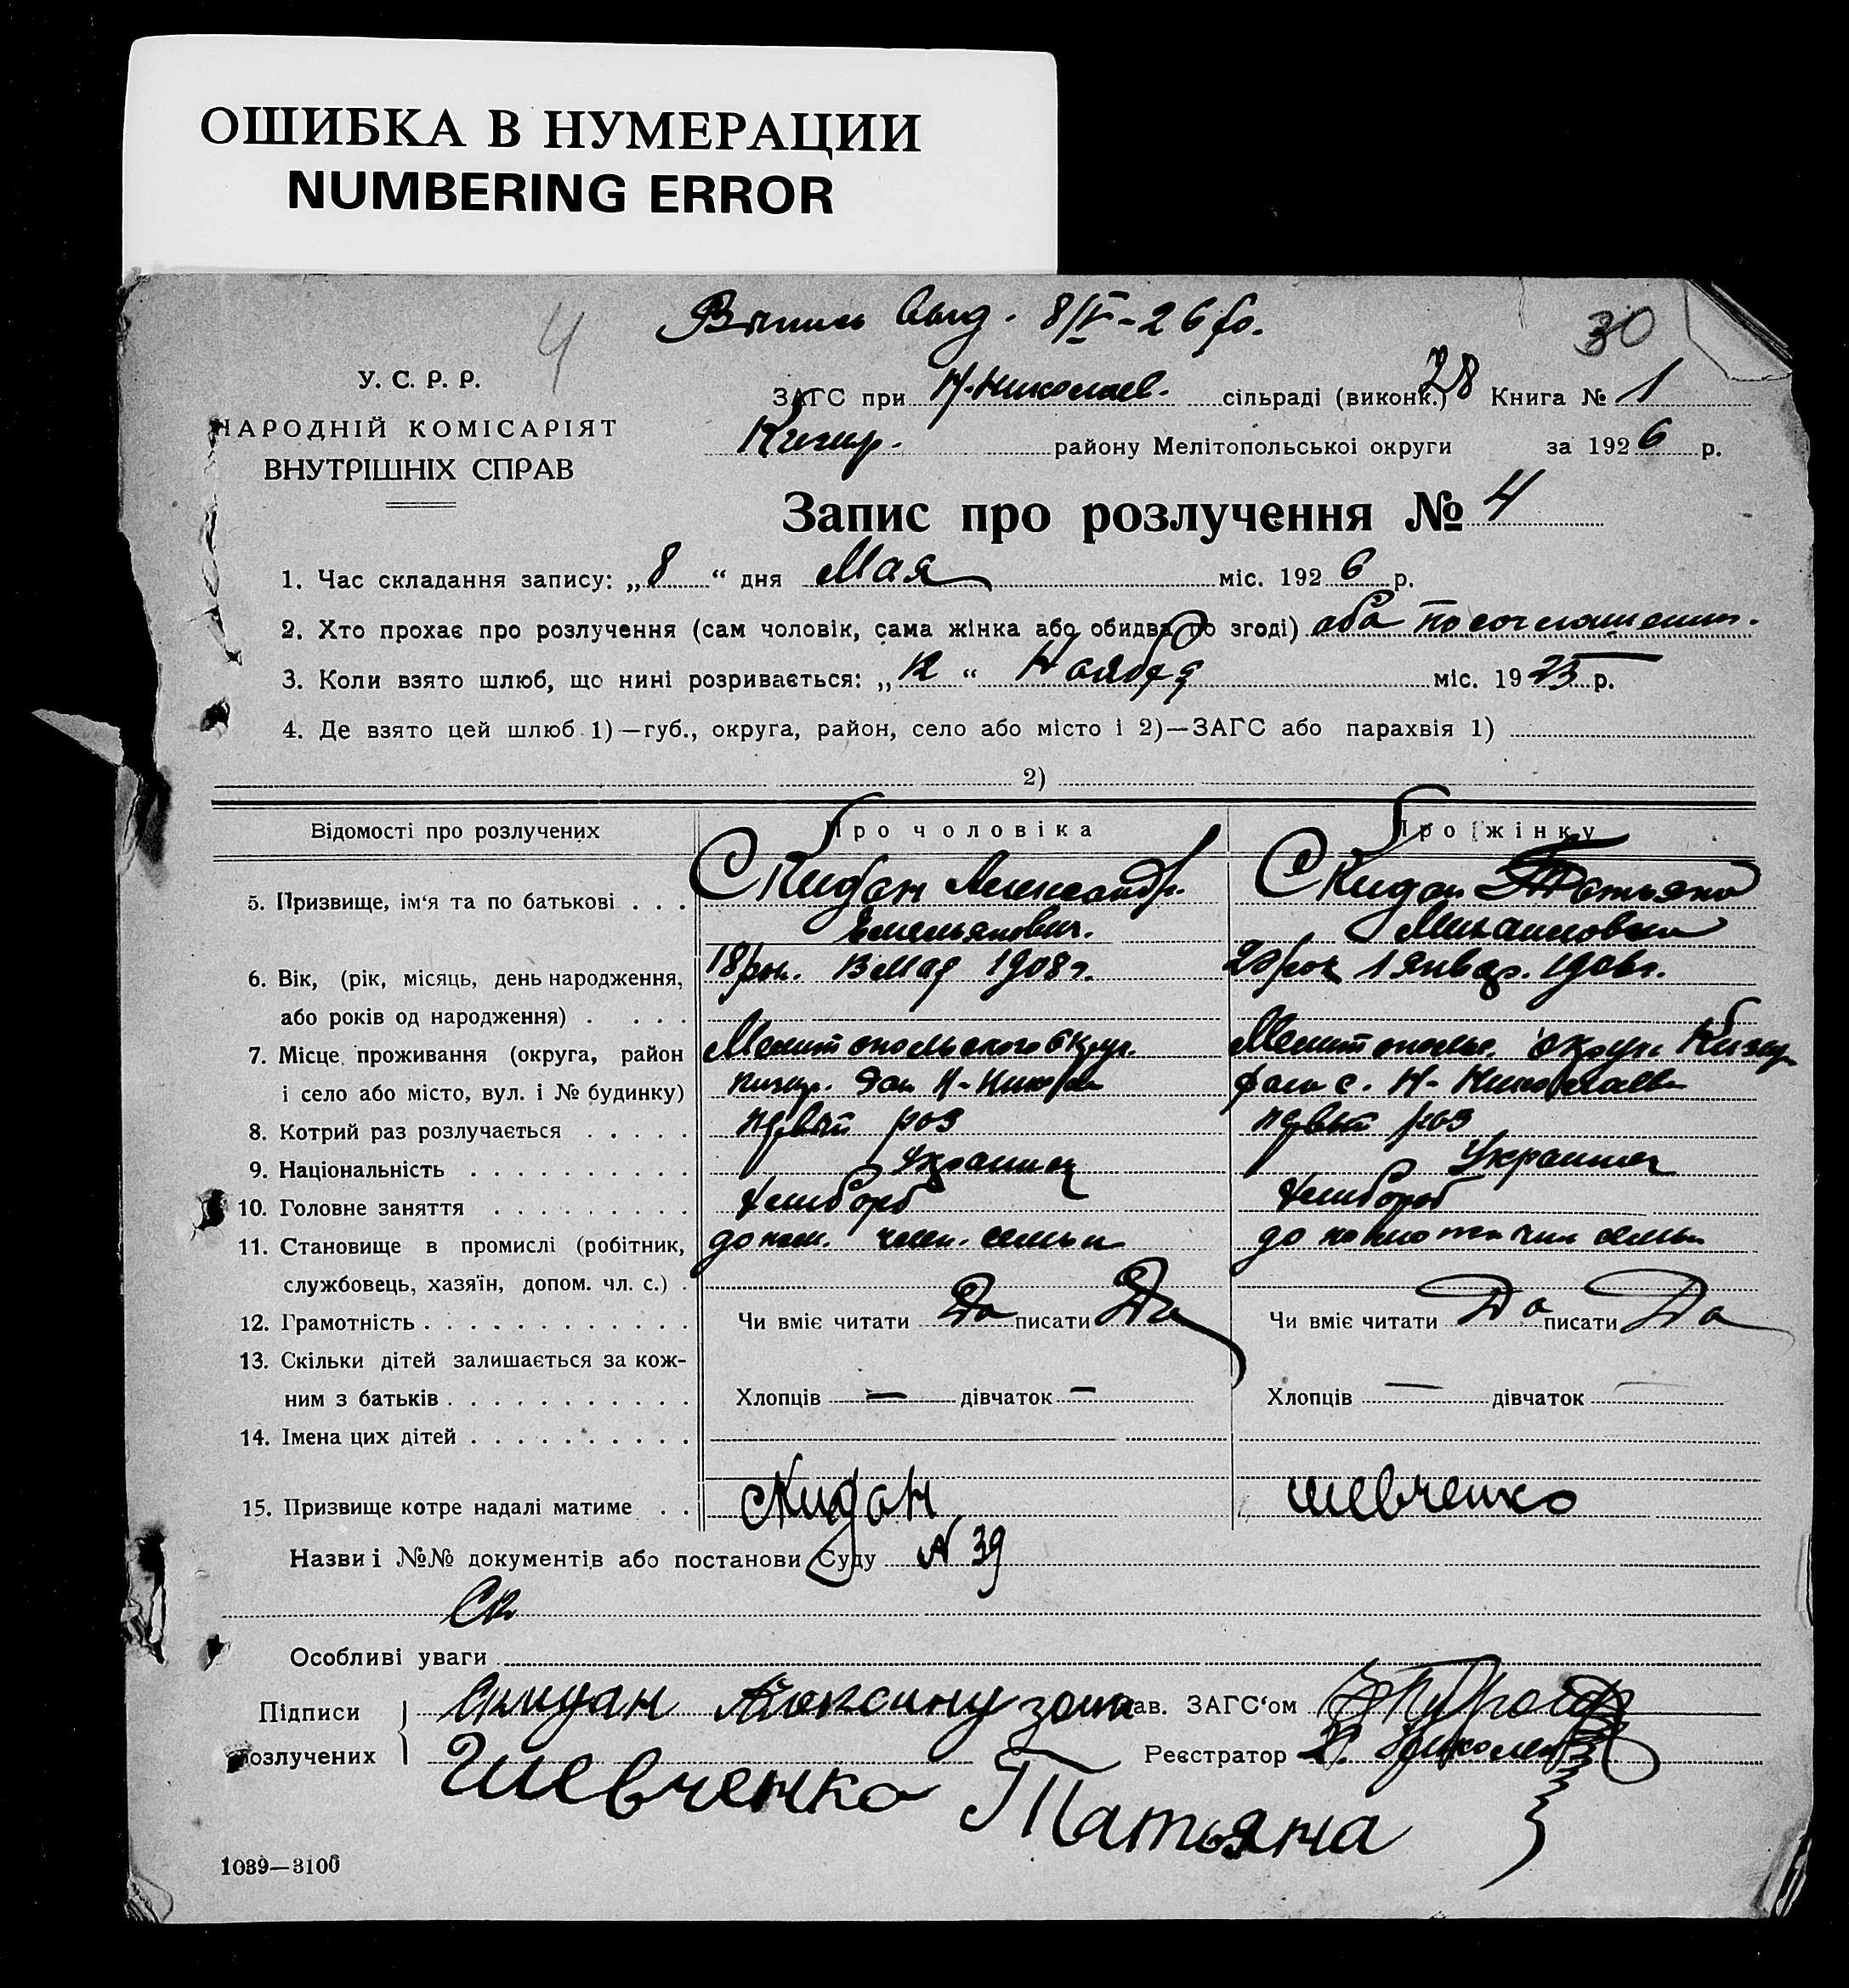 ОШИБКА В НУМЕРАЦИИ
NUMBERING ERROR
4
8/V-26 р.
30
У. С. Р. Р.
НАРОДНІЙ КОМІСАРІЯТ
ВНУТРІШНІХ СПРАВ
ЗАГС при Н-Николаев. сільраді (виконк.) 28 Книга № 1
району Мелітопольськоі округи за 1926 р.
Запис про розлучення № 4
1. Час складання запису: „8“ дня Мая міс. 1926 р.
2. Хто прохає про розлучення (сам чоловік, сама жінка або обидва по згоді) оба по соглашению.
3. Коли взято шлюб, що нині розривається: „12“ Ноября міс. 1925 р.
4. Де взято цей шлюб 1)—губ., округа, район, село або місто і 2)—ЗАГС або парахвія 1)
2)
Відомості про розлучених Про чоловіка Про жінку
5. Призвище, ім‘я та по батькові . . . Скидан Александр Скидан Татьяна
Емельянович. Михайловна
6. Вік, (рік, місяць, день народження, 18 рок. 13 Мая 1908 г. 20 рок 1 Январ. 1906 г.
або років од народження) . . . .
7. Місце проживання (округа, район Мелитопольского Округ. Мелитопольс. округ.
і село або місто, вул. і № будинку) Н-Никол с. Н-Николаевк
8. Котрий раз розлучається . . . . . первый раз первый раз
9. Національність . . . . . . . . . . Украинец Украинец
10. Головне заняття . . . . . . . . . Хлебороб Хлебороб
11. Становище в промислі (робітник, допом. член. семьи семьи
службовець, хазяїн, допом. чл. с.) .
12. Грамотність . . . . . . . . . . . . Чи вміє читати Да писати Да Чи вміє читати Да писати Да
13. Скільки дітей залишається за кож-
ним з батьків . . . . . . . . . . . Хлопців — дівчаток — Хлопців — дівчаток —
14. Імена цих дітей . . . . . . . . . .
15. Призвище котре надалі матиме . . Скидан Шевченко
Назви і №№ документів або постанови Суду № 39
Ск
Особливі уваги
Підписи Скидан Зав. ЗАГС‘ом
розлучених Реєстратор
Шевченко Татьяна
1039—3100